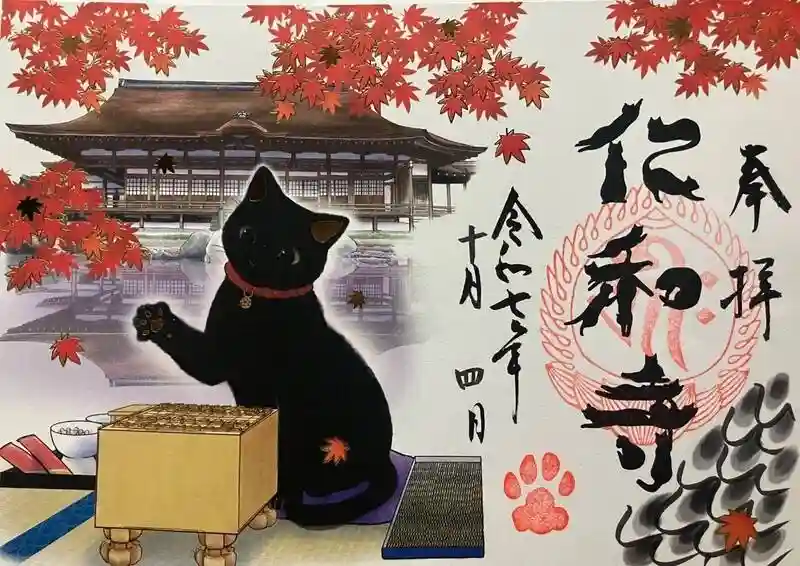 奉拝
仁和寺
令和七年
十月
四日